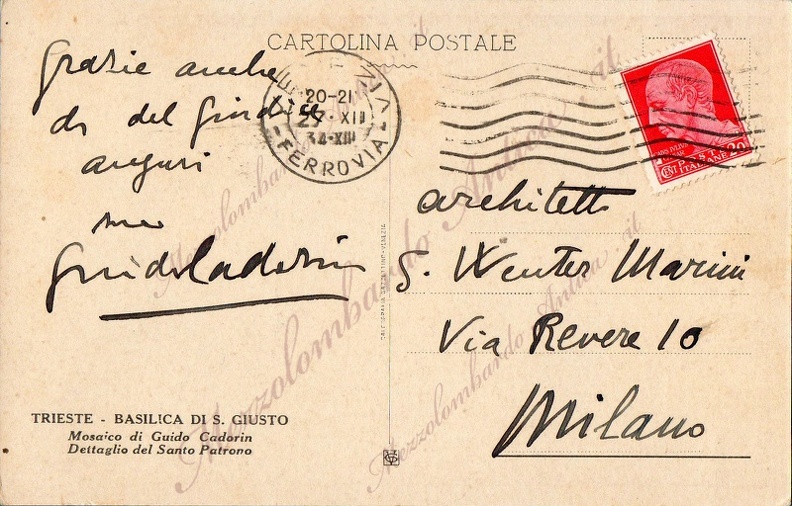 CARTOLINA POSTALE
Grazie anche
di del Giudice
auguri
suo
Guido Cadorin
20-21
27·XII
34-XIII
FERROVIA
POSTE
ITALIANE
CENT 20
architetto
G. Wenter Marini
Via Revere 10
Milano
TRIESTE - BASILICA DI S. GIUSTO
Mosaico di Guido Cadorin
Dettaglio del Santo Patrono
Mezzolombardo Antica .it
Mezzolombardo Antica .it